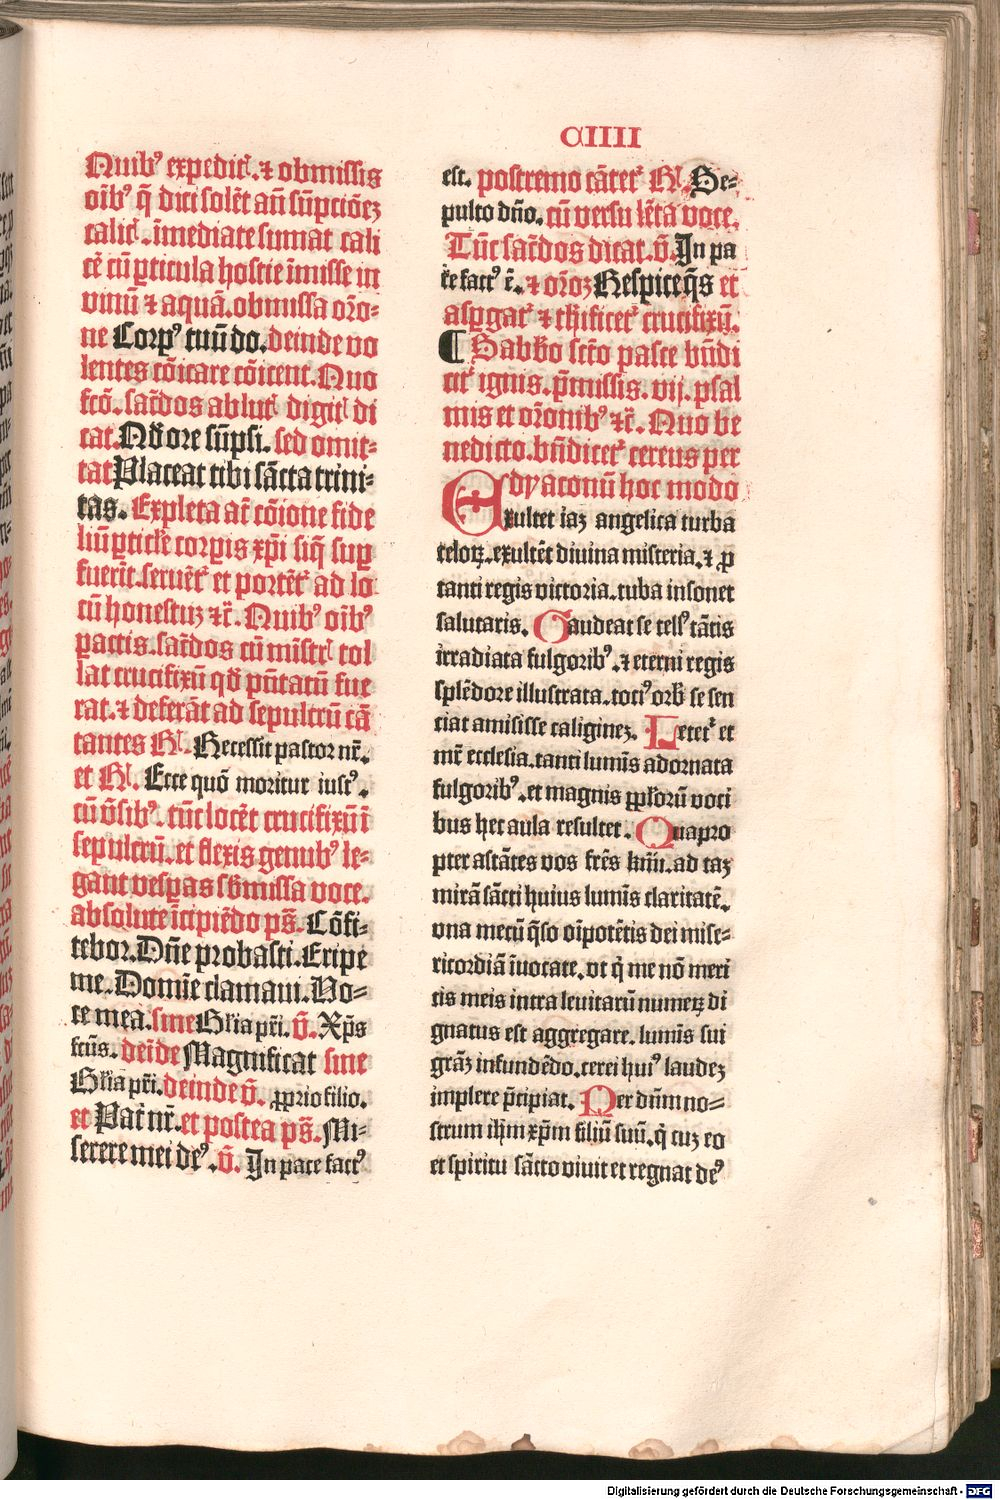 CIIII
Quib⁹ expedit͛. ⁊ obmissis
oīb⁹ q̄ dici solēt an̄ sūpciōeꝫ
calic͛. īmediate sumat cali
cē cū ꝑticula hostie īmisse in
vinū ⁊ aquā. obmissa orō-
ne Corp⁹ tuū do. deinde vo
lentes cōicare cōicent. Quo
fcō. sac̄dos ablut͛ digit͛ di
cat. Qd ore sūpsi. sed omit-
tat Placeat tibi sācta trini-
tas. Expleta at̄ cōione fide
liū ꝑtic̄le corꝑis xp̄i siq̄ suꝑ
fuerīt. seruēt͛ et portēt͛ ad lo
cū honestuꝫ ⁊c̄. Quib⁹ oīb⁹
pactis. sac̄dos cū mīstr͛ tol
lat crucifixū qd̄ pn̄tatū fue
rat. ⁊ deferāt ad sepulcrū cā
tantes R͛. Recessit pastor nr̄.
et R͛. Ecce quō moritur iust⁹.
cū v̄sib⁹. tūc locēt crucifixū ī
sepulcrū. et flexis genub⁹ le-
gant vesꝑas sb̄missa voce.
absolute īcipiēdo pš. Cōfi-
tebor. Dn̄e probasti. Eripe
me. Domīe clamaui. Vo-
ce mea. sine Gl̄ia pr̄i. v̄. Xp̄s
fcūs. deīde Magnificat sine
Gl̄ia pr̄i. deinde v̄. ꝓprio filio.
et Pat̄ nr̄. et postea pš. Mi-
serere mei de⁹. v̄. In pace fact⁹
est. postremo cātet͛ R͛. Se-
pulto dn̄o. cū versu lēta voce.
Tūc sac̄dos dicat. v̄. In pa
ce fact⁹ ē. ⁊ orōꝫ Respice q̄s et
asꝑgat͛ ⁊ th̄ificet͛ crucifixū.
¶ Sabb̄o scto pasce bn̄di
cit͛ ignis. p̄missis. vij. psal
mis et orōnib⁹ ⁊c̄. Quo be
nedicto. bn̄dicet͛ cereus per
dyaconū hoc modo
Exultet iaꝫ angelica turba
celoꝝ. exultēt diuina misteria. ⁊ ꝓ
tanti regis victoria. tuba insonet
salutaris. Gaudeat se tell⁹ tātis
irradiata fulgorib⁹. ⁊ eterni regis
splēdore illustrata. toti⁹ orb̄ se sen
ciat amisisse caligineꝫ. Letet͛ et
mr̄ ecclesia. tanti lumīs adornata
fulgorib⁹. et magnis ꝓplorū voci
bus hec aula resultet. Quapro
pter astātes vos frēs kmī. ad taꝫ
mirā sācti huius lumīs claritatē.
vna mecū q̄so oīpotētis dei mise-
ricordiā īuocate. vt q̄ me nō meri
tis meis intra leuitarū numeꝝ di
gnatus est aggregare. lumīs sui
grāꝫ infundēdo. cerei hui⁹ laudeꝫ
implere p̄cipiat. Per dn̄m no-
strum ih̄m xp̄m filiū suū. q̄ cuꝫ eo
et spiritu sācto viuit et regnat de⁹
Digitalisierung gefördert durch die Deutsche Forschungsgemeinschaft - DFG